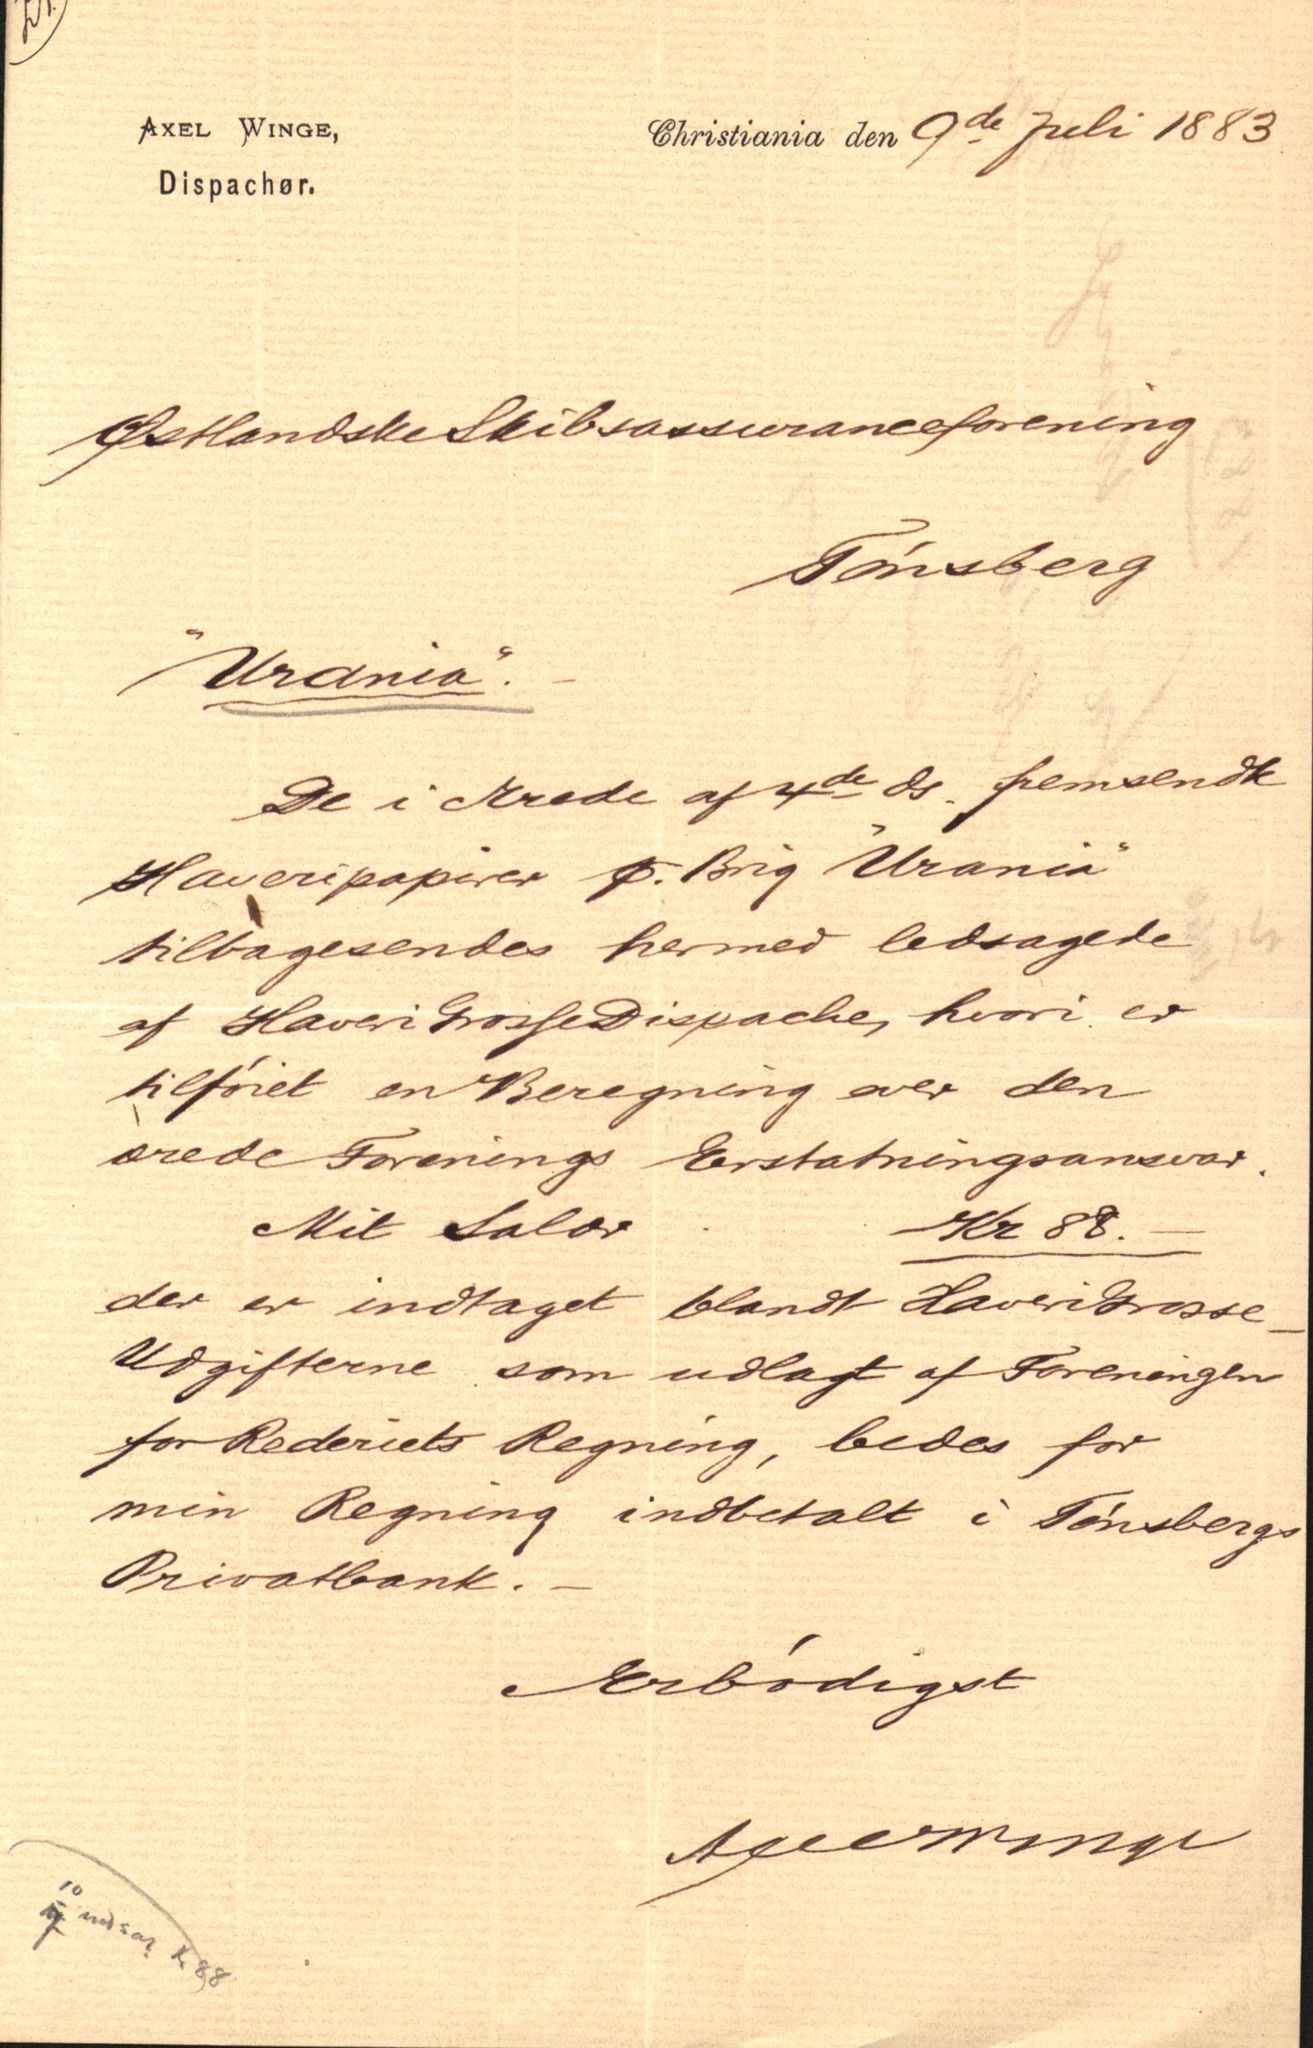 AXEL WINGE,
Dispachør.
Christiania den 9de Juli 1883
Østlandske Skibsassuranceforening
Tønsberg
"Urania". –
De i Ærede af 4de ds. fremsendte
Havaripapirer p. Brig "Urania"
tilbagesendes hermed ledsagede
af Haveri Grosse Dispache, hvori er
tilføiet en Beregning over den
ærede Forenings Erstatningsansvar.
Mit Salær Kr 88. –
der er indtaget blandt HaveriGrosse-
Udgifterne som udlagt af Foreningen
for Rederiets Regning, bedes for
min Regning indbetalt i Tønsbergs
Privatbank. –
Ærbødigst
Axel Winge
10 indsat k 88